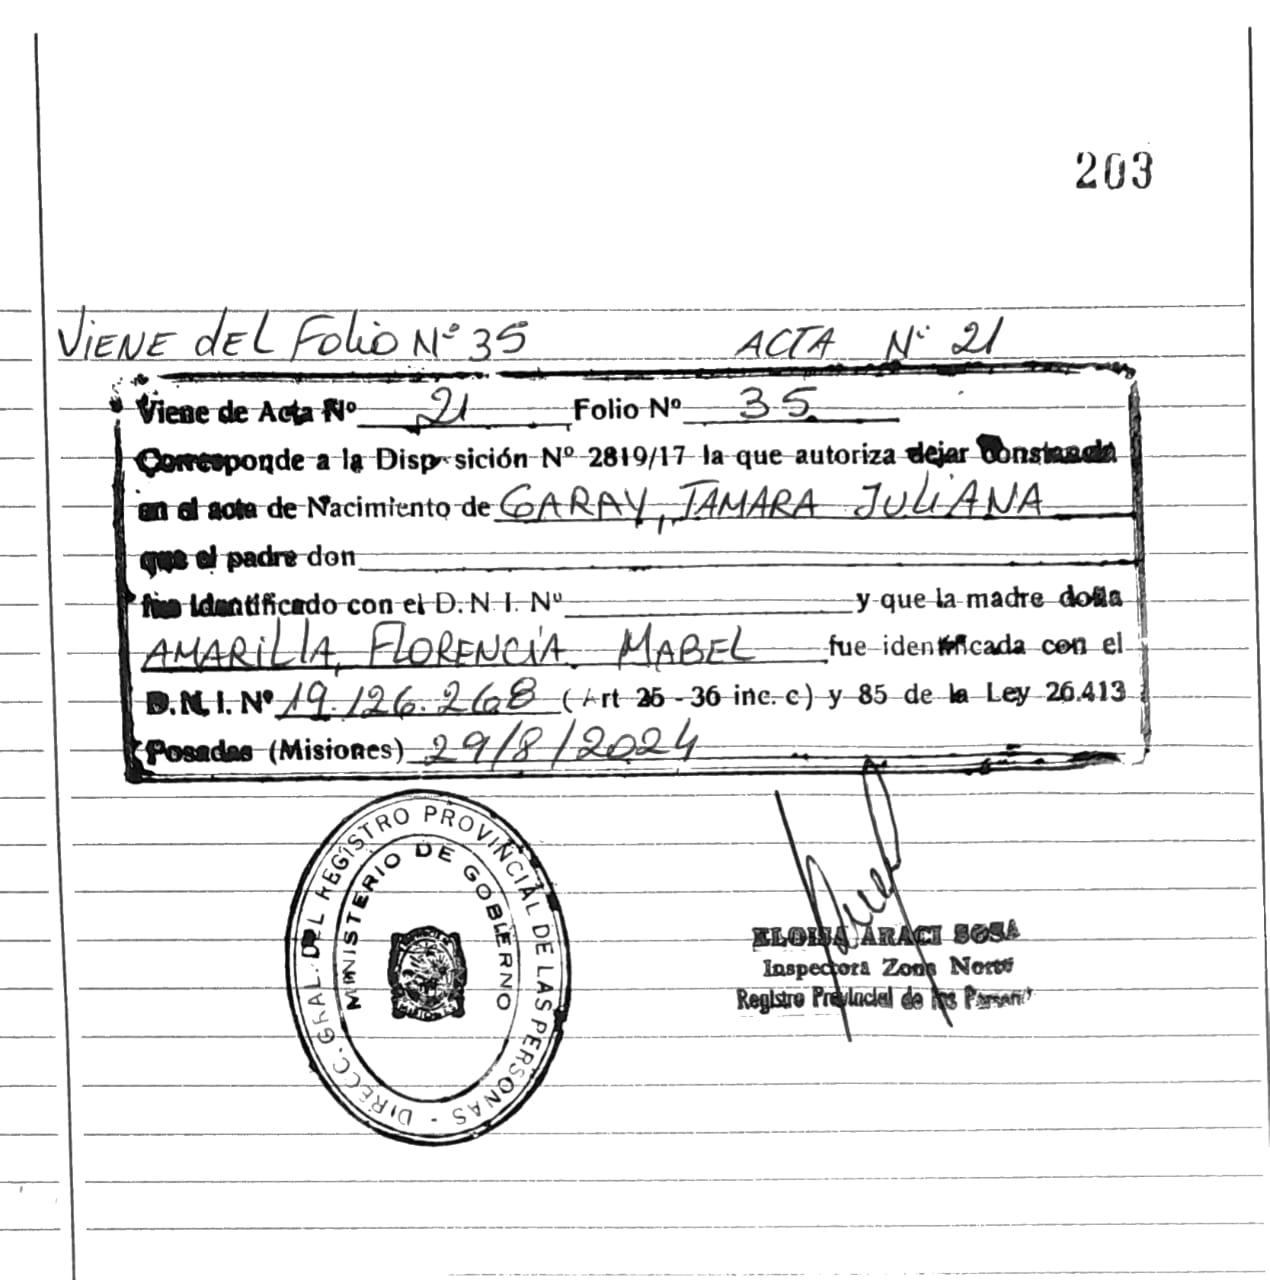 203
ViENE dEL Folio Nº 35 ACTA Nº 21
Viene de Acta Nº 21 Folio Nº 35
Corresponde a la Disposición Nº 2819/17 la que autoriza dejar Constancia
en el acta de Nacimiento de GARAY, TAMARA JULIANA
que el padre don
fue identificado con el D.N.I. Nº y que la madre doña
AMARILLA, FLORENCIA MABEL fue identificada con el
D.N.I. Nº 19.126.268 (Art 25 - 36 inc. c) y 85 de la Ley 26.413
Posadas (Misiones) 29/8/2024
DIRECC. GRAL. DEL REGISTRO PROVINCIAL DE LAS PERSONAS -
MINISTERIO DE GOBIERNO
ELOISA ARACI SOSA
Inspectora Zona Norte
Registro Provincial de las Person